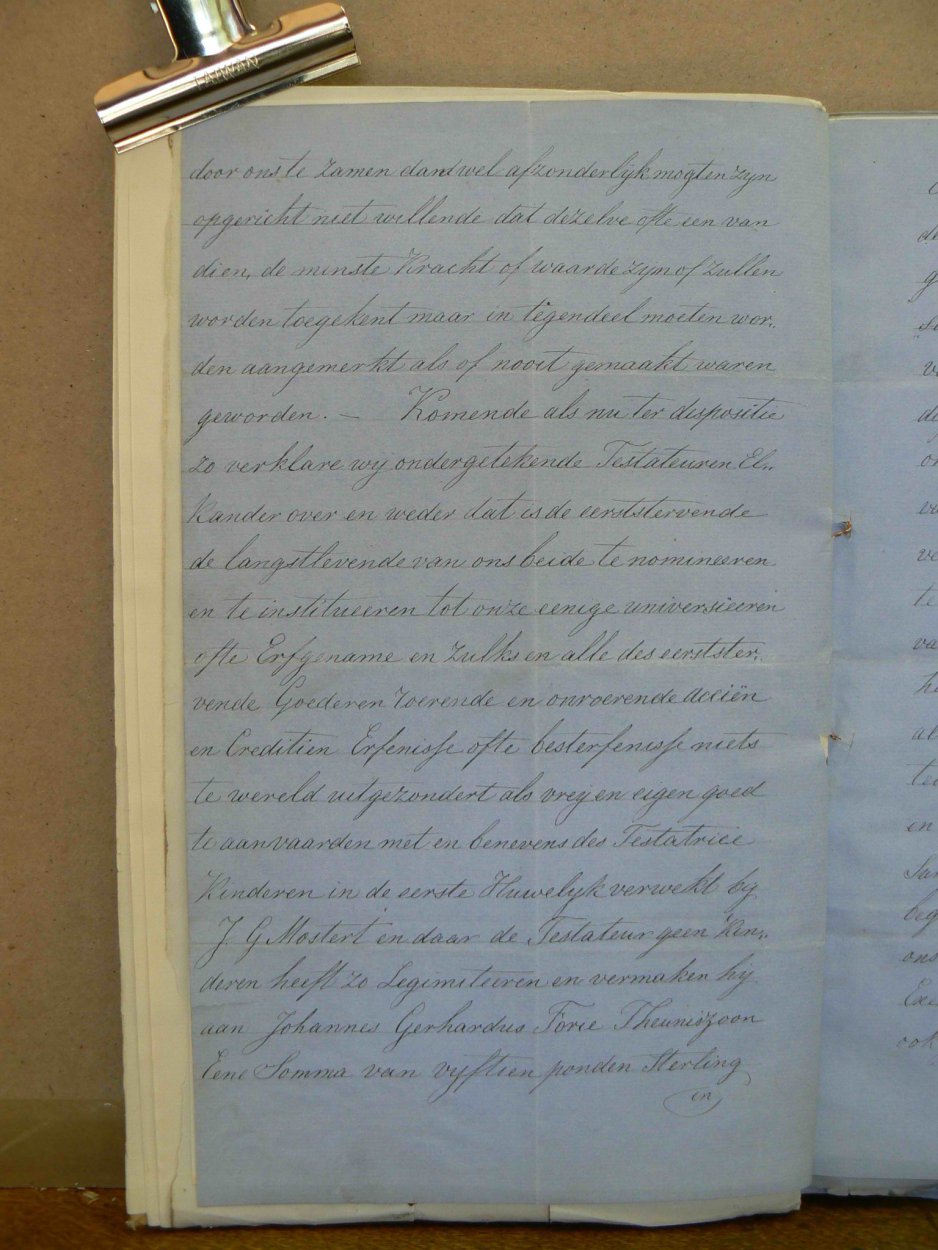 TAIWAN
door ons te zamen dan wel afzonderlyk mogten zyn
opgericht niet willende dat dezelve ofte een van
dien, de minste Kracht of waarde zyn of zullen
worden toegekent maar in tegendeel moeten wor„
den aangemerkt als of nooit gemaakt waren
geworden. — Komende als nu ter dispositie
zo verklare wy ondergetekende Testateuren El„
kander over en weder dat is de eerststervende
de langstlevende van ons beide te nomineeren
en te institueeren tot onze eenige universieeren
ofte Erfgename en zulks en alle des eerstster„
vende Goederen roerende en onroerende acciën
en Creditien Erfenisse ofte besterfenisse niets
te wereld uitgezondert als vrey en eigen goed
te aanvaarden met en benevens des Testatrice
Kinderen in de eerste Huwelyk verwekt by
J. G Mostert en daar de Testateur geen Kin„
deren heeft zo Legimiteeren en vermaken hij
aan Johannes Gerhardus Forie Theuniszoon
Eene Somma van vyftien ponden Sterling
in